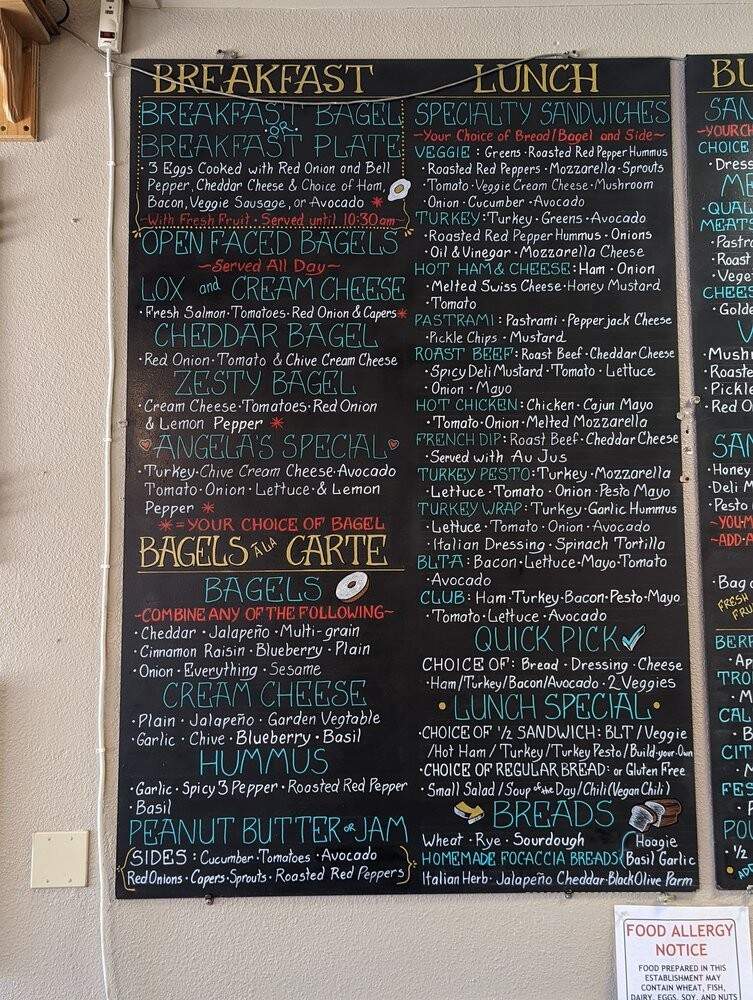 BREAKFAST
BREAKFAST BAGEL
·OR·
BREAKFAST PLATE
· 3 Eggs Cooked with Red Onion and Bell
Pepper, Cheddar Cheese & Choice of Ham,
Bacon, Veggie Sausage, or Avocado *
~With Fresh Fruit · Served until 10:30am~
OPEN FACED BAGELS
~Served All Day~
LOX and CREAM CHEESE
· Fresh Salmon · Tomatoes · Red Onion & Capers *
CHEDDAR BAGEL
· Red Onion · Tomato & Chive Cream Cheese
ZESTY BAGEL
· Cream Cheese · Tomatoes · Red Onion
& Lemon Pepper *
ANGELA'S SPECIAL
· Turkey · Chive Cream Cheese · Avocado
Tomato · Onion · Lettuce · & Lemon
Pepper *
* = YOUR CHOICE OF BAGEL
BAGELS Á LA CARTE
BAGELS
~COMBINE ANY OF THE FOLLOWING~
· Cheddar · Jalapeño · Multi-grain
· Cinnamon Raisin · Blueberry · Plain
· Onion · Everything · Sesame
CREAM CHEESE
· Plain · Jalapeño · Garden Vegtable
· Garlic · Chive · Blueberry · Basil
HUMMUS
· Garlic · Spicy 3 Pepper · Roasted Red Pepper
· Basil
PEANUT BUTTER or JAM
SIDES : Cucumber · Tomatoes · Avocado
Red Onions · Capers · Sprouts · Roasted Red Peppers
LUNCH
SPECIALTY SANDWICHES
~Your Choice of Bread/Bagel and Side~
VEGGIE : Greens · Roasted Red Pepper Hummus
· Roasted Red Peppers · Mozzarella · Sprouts
· Tomato · Veggie Cream Cheese · Mushroom
Onion · Cucumber · Avocado
TURKEY: Turkey · Greens · Avocado
· Roasted Red Pepper Hummus · Onions
Oil & Vinegar · Mozzarella Cheese
HOT HAM & CHEESE : Ham · Onion
· Melted Swiss Cheese · Honey Mustard
· Tomato
PASTRAMI : Pastrami · Pepperjack Cheese
· Pickle Chips · Mustard
ROAST BEEF : Roast Beef · Cheddar Cheese
· Spicy Deli Mustard · Tomato · Lettuce
Onion · Mayo
HOT CHICKEN : Chicken · Cajun Mayo
· Tomato · Onion · Melted Mozzarella
FRENCH DIP : Roast Beef · Cheddar Cheese
· Served with Au Jus
TURKEY PESTO : Turkey · Mozzarella
· Lettuce · Tomato · Onion · Pesto Mayo
TURKEY WRAP : Turkey · Garlic Hummus
· Lettuce · Tomato · Onion · Avocado
· Italian Dressing · Spinach Tortilla
BLTA : Bacon · Lettuce · Mayo · Tomato
· Avocado
CLUB : Ham · Turkey · Bacon · Pesto · Mayo
· Tomato · Lettuce · Avocado
QUICK PICK
CHOICE OF : Bread · Dressing · Cheese
· Ham/Turkey/Bacon/Avocado · 2 Veggies
· LUNCH SPECIAL ·
· CHOICE OF ½ SANDWICH: BLT / Veggie
/Hot Ham / Turkey / Turkey Pesto / Build-your-Own
· CHOICE OF REGULAR BREAD: or Gluten Free
· Small Salad / Soup of the Day / Chili (Vegan Chili)
BREADS
Wheat · Rye · Sourdough
Hoagie
HOMEMADE FOCACCIA BREADS
Basil Garlic
Italian Herb · Jalapeño Cheddar · Black Olive Parm
BU
SAN
CHOICE
· Dress
ME
MEATS
· Pastra
· Roast
CHEES
· Golde
V
· Mushr
· Roaste
· Pickle
· Red O
SAN
· Honey
· Deli M
· Pesto
~YOU M
~ADD A
· Bag o
FRESH
FRU
BERR
· Ap
TRO
· M
CAL
· B
CIT
· M
FES
· P
PO
· ½
FOOD ALLERGY
NOTICE
FOOD PREPARED IN THIS
ESTABLISHMENT MAY
CONTAIN WHEAT, FISH,
DAIRY, EGGS, SOY, AND NUTS